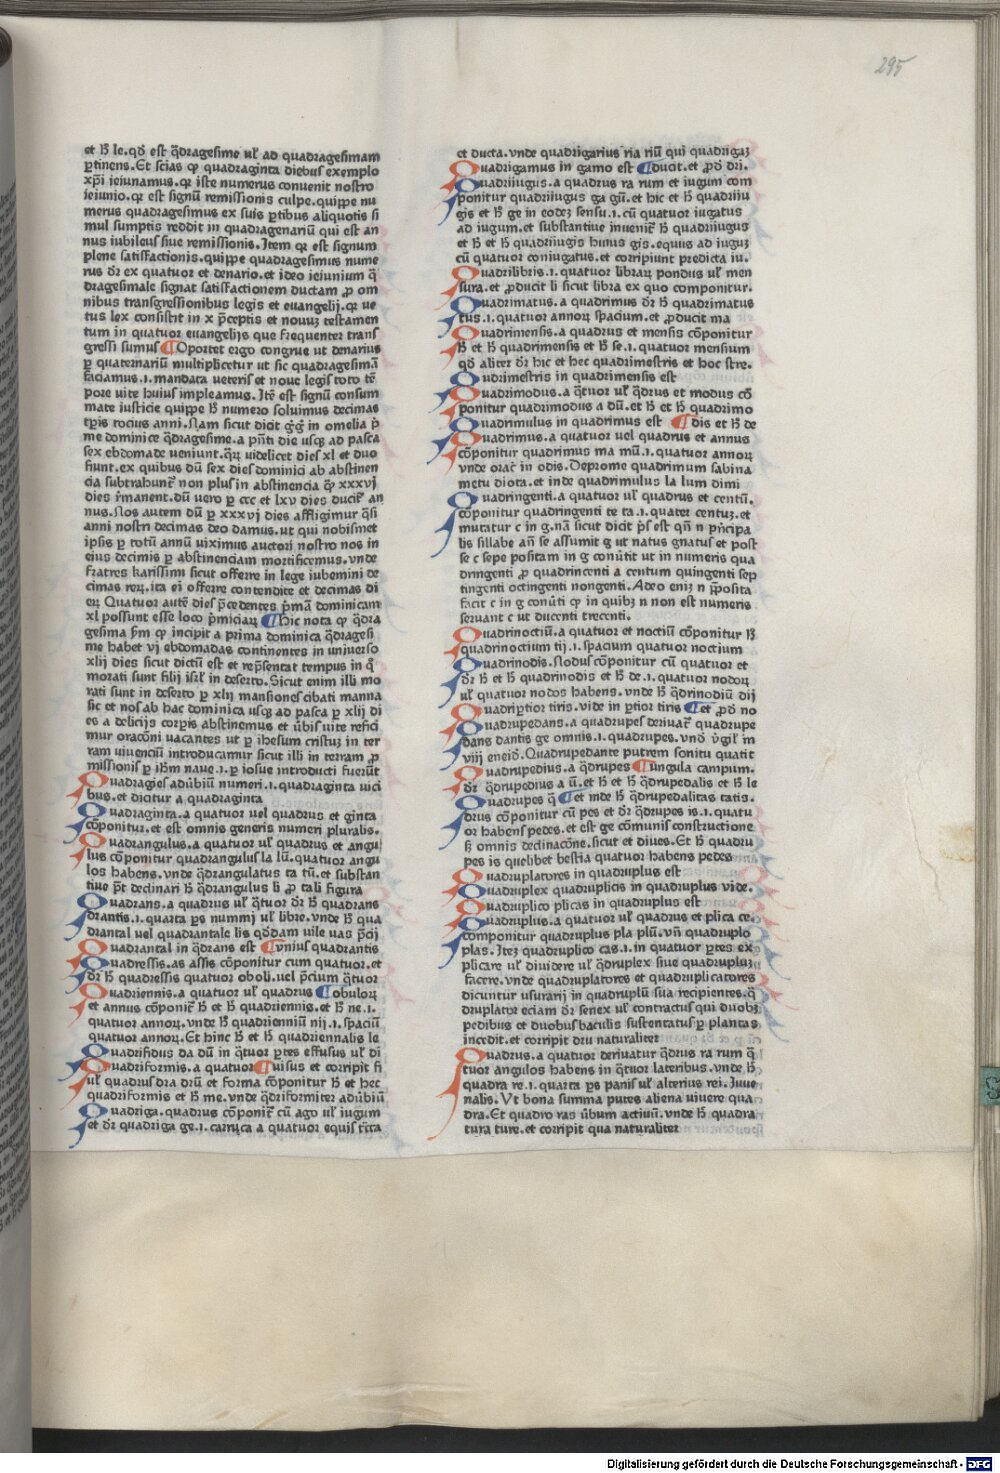 295
et hꝫ le. qđ est q̃dragesime ul' ad quadragesimam
ꝑtinens. Et scias qꝫ quadraginta diebus exemplo
xp̃i ieiunamus. qꝛ iste numerus conuenit nostro
ieiunio. qꝛ est signũ remissionis culpe. quippe nu
merus quadragesimus ex suis ꝑtibus aliquotis si
mul sumptis reddit in quadragenariũ qui est an
nus iubileus siue remissionis. Item qꝛ est signum
plene satisfactionis. quippe quadragesimus nume
rus dꝛ ex quatuor et denario. et ideo ieiunium q̃
dragesimale signat satisfactionem ductam ꝓ om
nibus transgressionibus legis et euangelij. qꝛ ue
tus lex consistit in x p̃ceptis et nouuꝫ testamen
tum in quatuor euangelijs que frequenter trans
gressi sumus ¶ Oportet ergo congrue ut denarius
ꝑ quaternariũ multiplicetur ut sic quadragesimã
faciamus. i. mandata ueteris et noue legis toto tẽ
pore uite huius impleamus. Itẽ est signũ consum
mate iusticie quippe hꝫ numero soluimus decimas
tꝑis tocius anni. Nam sicut dicit g̃g̃ in omelia p̃
me dominice q̃dragesime. a pñti die usqꝫ ad pasca
sex ebdomade ueniunt. qꝝ uidelicet dies xl et duo
fiunt. ex quibus dũ sex dies dominici ab abstinen
cia subtrahunt᷑ non plus in abstinencia qꝫ xxxvj
dies r̃manent. dũ uero ꝑ ccc et lxv dies ducit᷑ an
nus. Nos autem dũ ꝑ xxxvj dies affligimur q̃si
anni nostri decimas deo damus. ut qui nobismet
ipsis ꝑ totũ annũ uiximus auctori nostro nos in
eius decimis ꝑ abstinenciam mortificemus. vnde
fratres karissimi sicut offerre in lege iubemini de
cimas reꝝ. ita ei offerre contendite et decimas di
eꝝ Quatuor autẽ dies p̃cedentes p̃mã dominicam
xl possunt esse loco p̃miciaꝝ ¶ Hic nota qꝫ q̃dra
gesima ẜm qꝫ incipit a prima dominica q̃dragesi
me habet vj ebdomadas continentes in uniuerso
xlij dies sicut dictũ est et rep̃sentat tempus in q̊
morati sunt filij isrl' in deserto. Sicut enim illi mo
rati sunt in deserto ꝑ xlij mansiones cibati manna
sic et nos ab hac dominica usqꝫ ad pasca ꝑ xlij di
es a delicijs corꝑis abstinemus et ũbis uite refici
mur oracõni uacantes ut ꝑ ihesum cristuꝫ in ter
ram uiuenciũ introducamur sicut illi in terram ꝓ
missionis ꝑ ihm̃ naue. i. ꝑ iosue introducti fuerũt
Quadragies aduerbiũ numeri. i. quadraginta uici
bus. et dicitur a quadraginta
Quadraginta. a quatuor uel quadrus et ginta
cõponitur. et est omnis generis numeri pluralis.
Quadrangulus. a quatuor ul' quadrus et angu
lus cõponitur quadrangulus la lũ. quatuor angu
los habens. vnde q̃drangulatus ta tũ. et substan
tiue p̃t declinari hꝫ q̃drangulus li ꝓ tali figura
Quadrans. a quadrus ul' q̃tuor dꝛ hꝫ quadrans
drantis. i. quarta ꝑs nummj ul' libre. vnde hꝫ qua
drantal uel quadrantale lis q̃ddam uile uas p̃cij
Quadrantal in q̃drans est ¶ vnius quadrantis
Quadressis. as assis cõponitur cum quatuor. et
dꝛ hꝫ quadressis quatuor oboli. uel p̃cium q̃tuor
Quadriennis. a quatuor ul' quadrus ¶ oboloꝝ
et annus cõponit᷑ hꝫ et hꝫ quadriennis. et hꝫ ne. i.
quatuor annoꝝ. vnde hꝫ quadrienniũ nij. i. spaciũ
quatuor annoꝝ. Et hinc hꝫ et hꝫ quadriennalis le
Quadrifidus da dũ in q̃tuor ꝑtes effusus ul' di
Quadriformis. a quatuor ¶ uisus et corripit fi
ul' quadrus dra drũ et forma cõponitur hꝫ et hec
quadriformis et hꝫ me. vnde q̃driformiter adũbiũ
Quadriga. quadrus cõponit᷑ cũ ago ul' iugum
et dꝛ quadriga ge. i. carruca a quatuor equis tr̃cta
et ducta. vnde quadrigarius ria riũ qui quadrigaꝫ
Quadrigamus in gamo est ¶ ducit. et ꝓđ dri.
Quadriiugus. a quadrus ra rum et iugum com
ponitur quadriiugus ga gũ. et hic et hꝫ quadriiu
gis et hꝫ ge in eodeꝫ sensu. i. cũ quatuor iugatus
ad iugum. et substantiue inuenit᷑ hꝫ quadriiugus
et hꝫ et hꝫ quadriiugis huius gis. equus ad iuguꝫ
cũ quatuor coniugatus. et corripiunt predicta iu.
Quadrilibris. i. quatuor libraꝝ pondus ul' men
sura. et ꝓducit li sicut libra ex quo componitur.
Quadrimatus. a quadrimus dꝛ hꝫ quadrimatus
tus. i. quatuor annoꝝ spacium. et ꝓducit ma
Quadrimensis. a quadrus et mensis cõponitur
hꝫ et hꝫ quadrimensis et hꝫ se. i. quatuor mensium
qđ aliter dꝛ hic et hec quadrimestris et hoc stre.
Qudrimestris in quadrimensis est
Quadrimodus. a q̃tuor ul' q̃drus et modus cõ
ponitur quadrimodus a dũ. et hꝫ et hꝫ quadrimo
Quadrimulus in quadrimus est ¶ dis et hꝫ de
Quadrimus. a quatuor uel quadrus et annus
cõponitur quadrimus ma mũ. i. quatuor annoꝝ
vnde orac᷑ in odis. Deprome quadrimum sabina
metu diota. et inde quadrimulus la lum dimi
Quadringenti. a quatuor ul' quadrus et centũ.
cõponitur quadringenti te ta. i. quater centuꝫ. et
mutatur c in g. nã sicut dicit p̃s est qñ n p̃ncipa
lis sillabe añ se assumit g ut natus gnatus et post
se c sepe positam in g conũtit ut in numeris qua
dringenti ꝓ quadrincenti a centum quingenti sep
tingenti octingenti nongenti. Adeo eniꝫ n p̃posita
facit c in g conũti qꝫ in quibꝫ n non est numeris
seruant c ut ducenti trecenti.
Quadrinoctiũ. a quatuor et noctiũ cõponitur hꝫ
quadrinoctium tij. i. spacium quatuor noctium
Quadrinodis. Nodus cõponitur cũ quatuor et
dꝛ hꝫ et hꝫ quadrinodis et hꝫ de. i. quatuor nodoꝝ
ul' quatuor nodos habens. vnde hꝫ q̃drinodiũ dij
Quadriꝑtior tiris. vide in ꝑtior tiris ¶ et ꝓđ no
Quadrupedans. a quadrupes deriuat᷑ quadrupe
dans dantis ge omnis. i. quadrupes. vnđ v̓gil' in
viij eneiđ. Quadrupedante putrem sonitu quatit
Quadrupedius. a q̃drupes ¶ ungula campum.
dꝛ q̃drupedius a ũ. et hꝫ et hꝫ q̃drupedalis et hꝫ le
Quadrupes q̃ ¶ et inde hꝫ q̃drupedalitas tatis.
drus cõponitur cũ pes et dꝛ q̃drupes is. i. quatu
or habens pedes. et est ge cõmunis constructione
ꝫ omnis declinacõne. sicut et diues. Et hꝫ quadru
pes is quelibet bestia quatuor habens pedes
Quadruplatores in quadruplus est
Quadruplex quadruplicis in quadruplus vide.
Quadruplico plicas in quadruplus est
Quadruplus. a quatuor ul' quadrus et plica ce.
componitur quadruplus pla plũ. vñ quadruplo
plas. Iteꝫ quadruplico cas. i. in quatuor ꝑtes ex
plicare ul' diuidere ul' q̃druplex siue quadrupluꝫ
facere. vnde quadruplatores et quadruplicatores
dicuntur usurarij in quadruplũ sua recipientes. q̃
druplator eciam dꝛ senex ul' contractus qui duobꝫ
pedibus et duobus baculis sustentatus ꝑ plantas
incedit. et corripit dru naturaliter
Quadrus. a quatuor deriuatur q̃drus ra rum q̃
tuor angulos habens in q̃tuor lateribus. vnde hꝫ
quadra re. i. quarta ꝑs panis ul' alterius rei. Juue
nalis. Vt bona summa putes aliena uiuere qua
dra. Et quadro ras ũbum actiuũ. vnde hꝫ quadra
tura ture. et corripit qua naturaliter
Digitalisierung gefördert durch die Deutsche Forschungsgemeinschaft - DFG